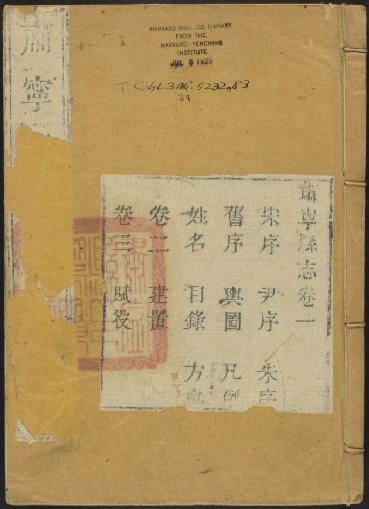 肅寧
HARVARD COLLEGE LIBRARY
FROM THE
HARVARD-YENCHING
INSTITUTE
JUL 8 1929
肅寧縣志卷一
宋序 尹序 朱序
舊序 輿圖 凡例
姓名 目錄 方
卷二 建置
卷三 賦役